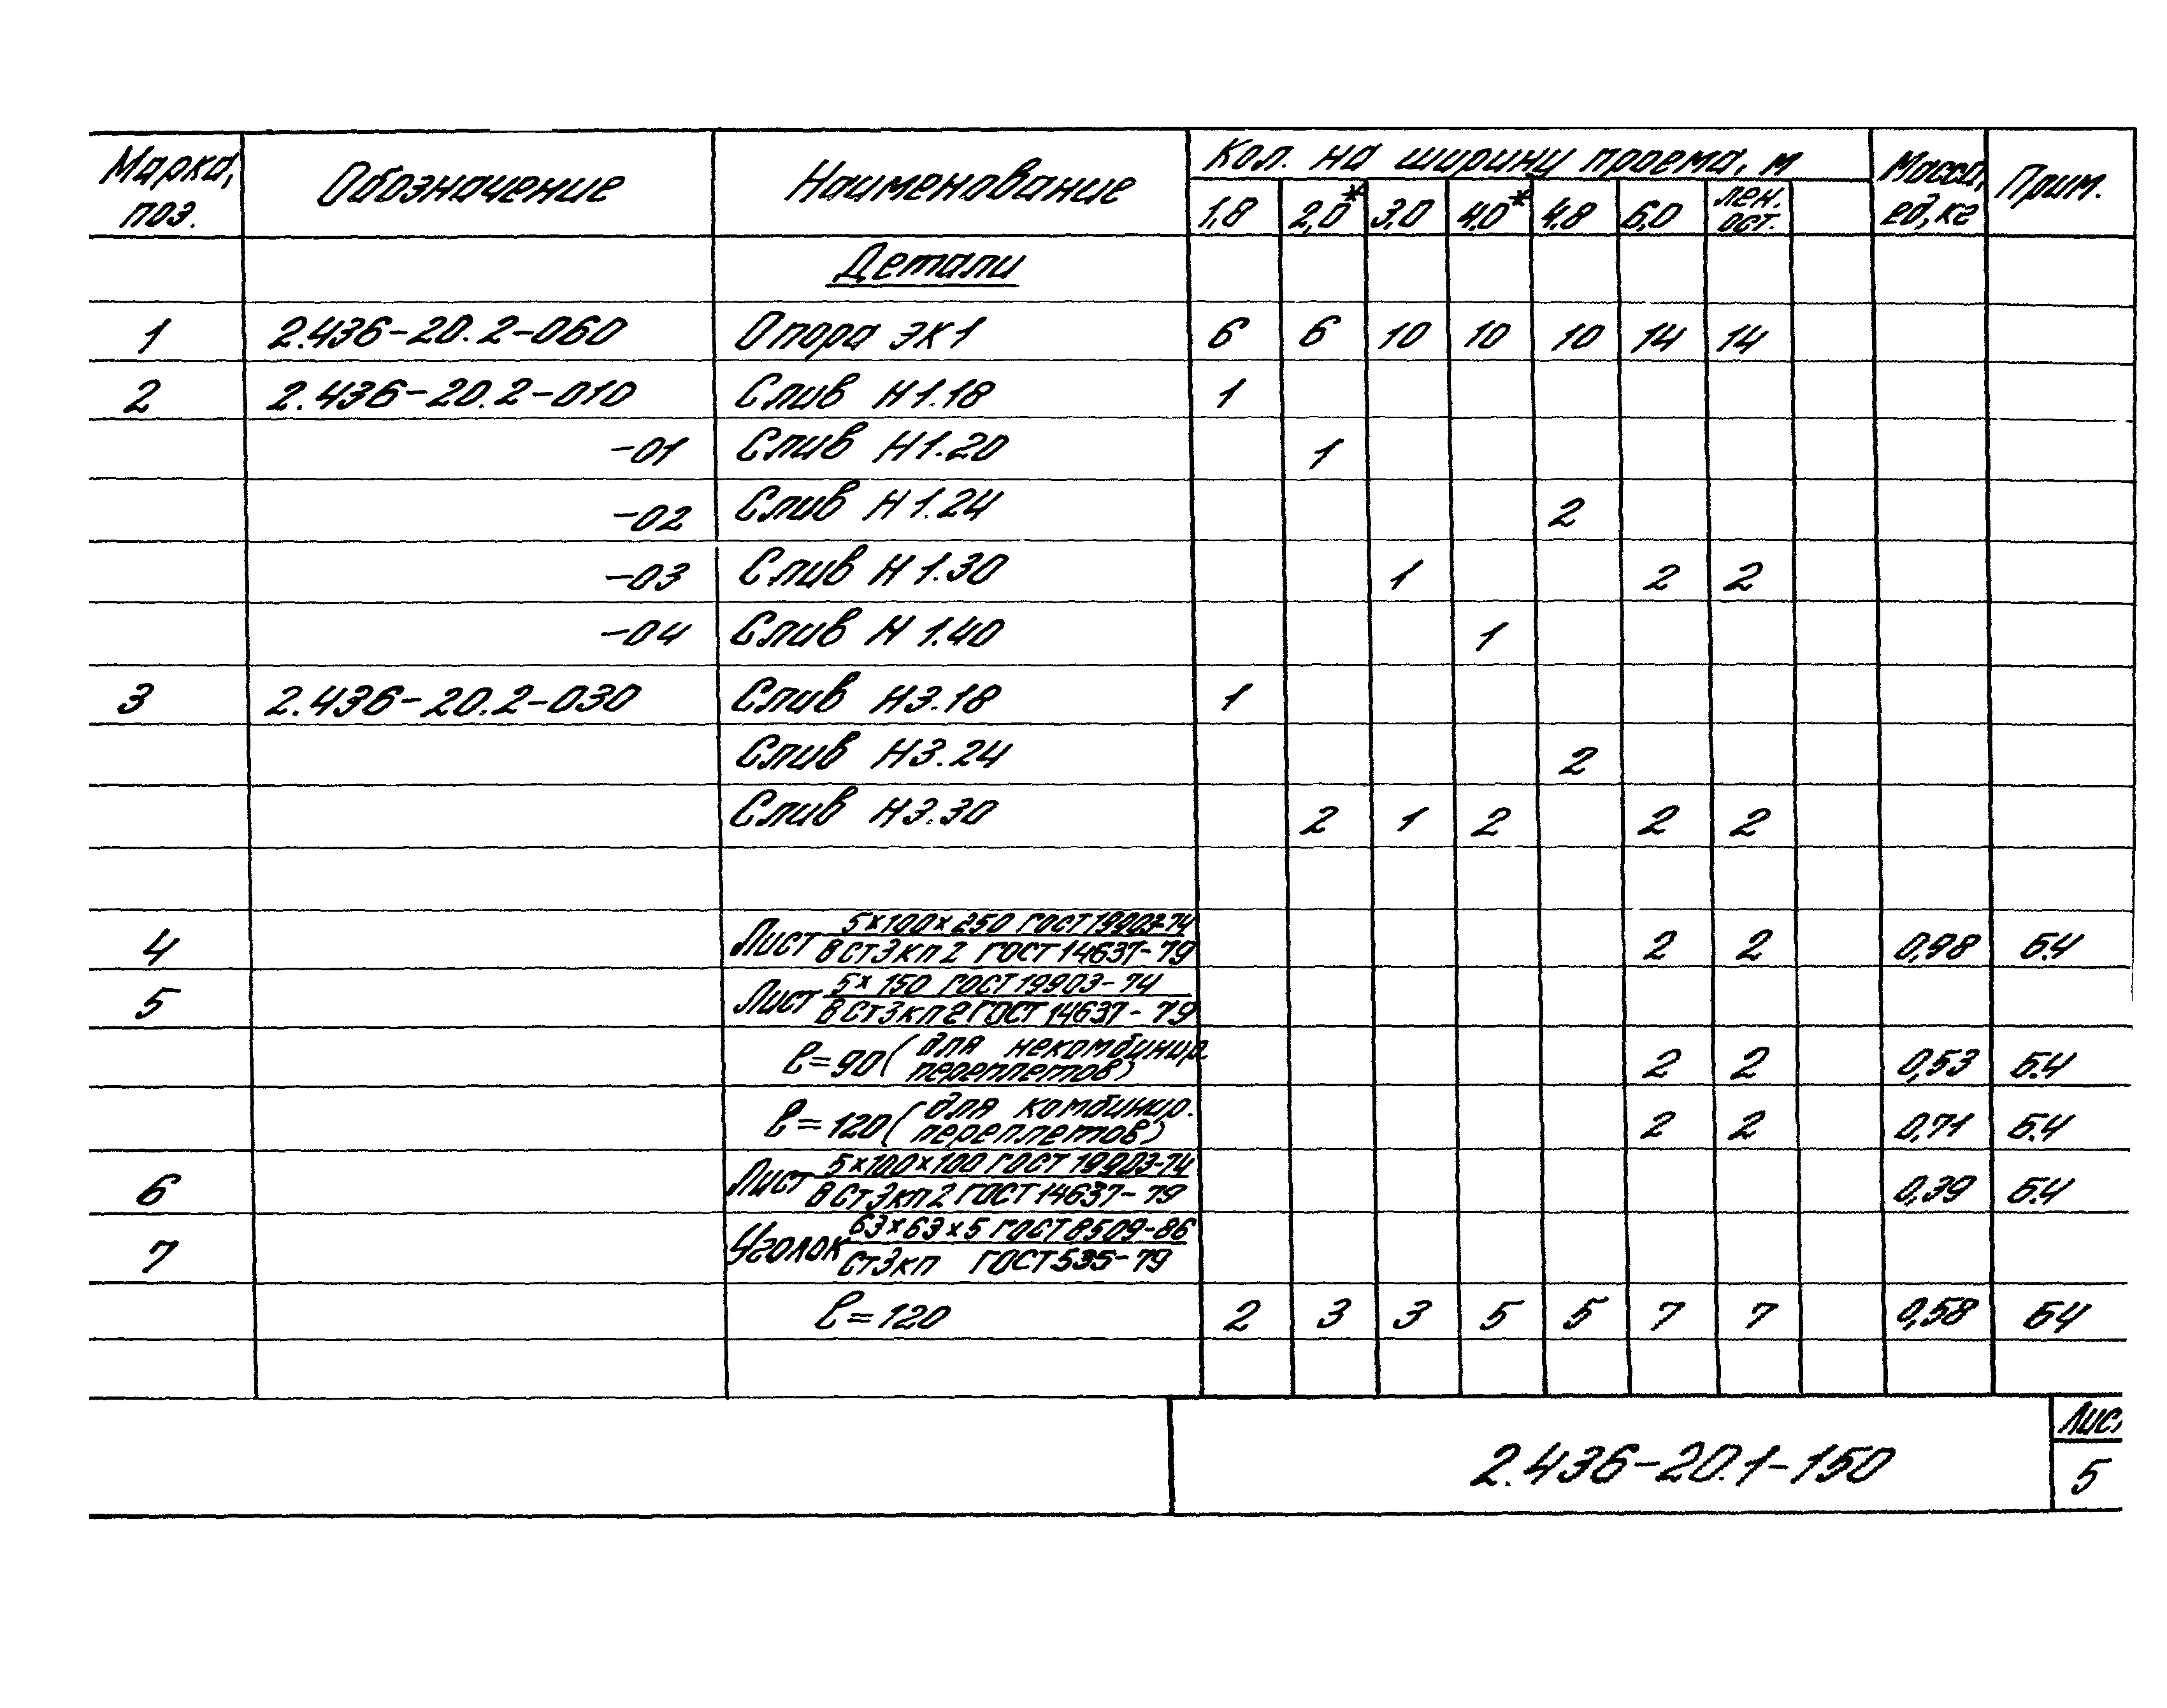 Марка, поз. Обозначение Наименование Кол. на ширину проема, м Масса, ед, кг Прим.
1,8 2,0* 3,0 4,0* 4,8 6,0 лен. ост.
Детали
1 2.436-20.2-060 Опора эк1 6 6 10 10 10 14 14
2 2.436-20.2-010 Слив Н1.18 1
-01 Слив Н1.20 1
-02 Слив Н1.24 2
-03 Слив Н1.30 1 2 2
-04 Слив Н1.40 1
3 2.436-20.2-030 Слив Н3.18 1
Слив Н3.24 2
Слив Н3.30 2 1 2 2 2
4 Лист 5×100×250 ГОСТ 19903-74
ВСт3кп2 ГОСТ 14637-79 2 2 0,98 Б.Ч
5 Лист 5×150 ГОСТ 19903-74
ВСт3кп2 ГОСТ 14637-79
ℓ=90 (для некомбинир.
переплетов) 2 2 0,53 Б.Ч
ℓ=120 (для комбинир.
переплетов) 2 2 0,71 Б.Ч
6 Лист 5×100×100 ГОСТ 19903-74
ВСт3кп2 ГОСТ 14637-79 0,39 Б.Ч
7 Уголок 63×63×5 ГОСТ 8509-86
Ст3кп ГОСТ 535-79
ℓ=120 2 3 3 5 5 7 7 0,58 БЧ
2.436-20.1-150
Лист
5